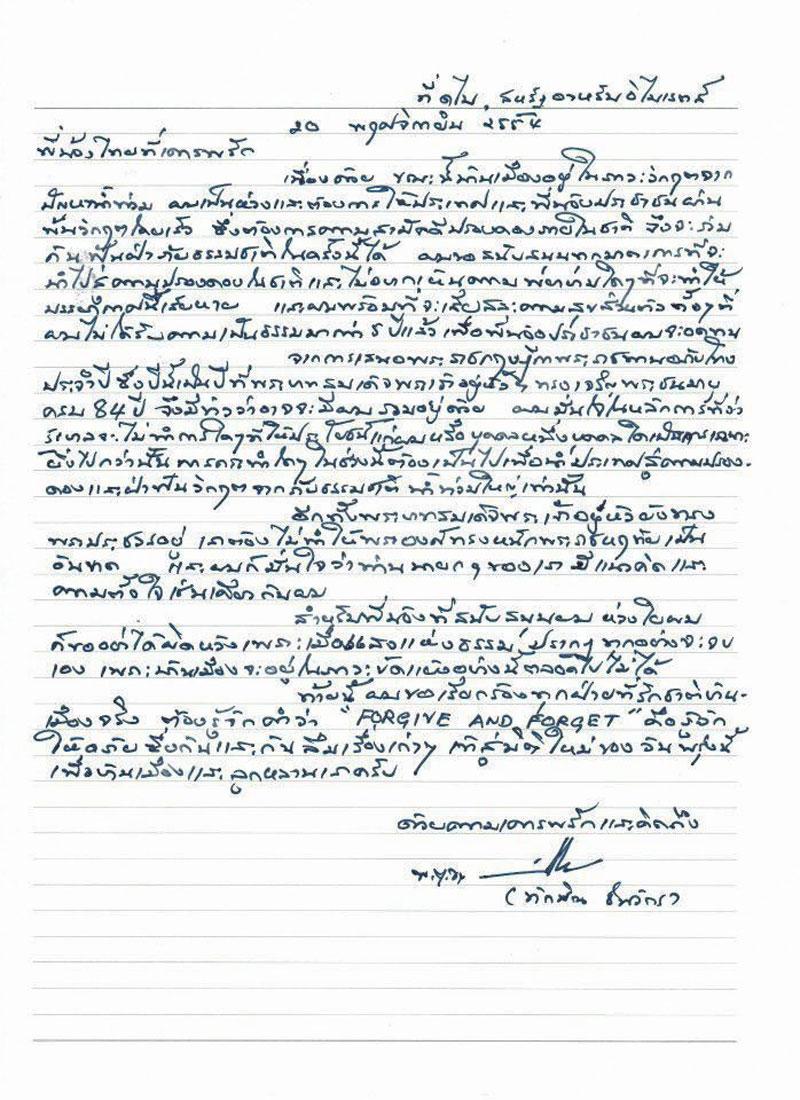 ที่ดูไบ สหรัฐอาหรับอิมิเรตส์
20 พฤศจิกายน 2554
พี่น้องไทยที่เคารพรัก
เนื่องด้วย ขณะนี้บ้านเมืองอยู่ในภาวะวิกฤตจาก
ปัญหาน้ำท่วม ผมเป็นห่วงและต้องการให้ประเทศและพี่น้องประชาชนผ่าน
พ้นวิกฤตโดยเร็ว ซึ่งต้องการความสามัคคีปรองดองภายในชาติ จึงจะร่วม
กันฟันฝ่าภัยธรรมชาติในครั้งนี้ได้ ผมขอสนับสนุนทุกมาตรการที่จะ
นำไปสู่ความปรองดองในชาติและไม่อยากเห็นความพยายามใดๆที่จะทำให้
บรรยากาศนี้เสียหาย และผมพร้อมที่จะเสียสละความสุขส่วนตัว ทั้งๆที่
ผมไม่ได้รับความเป็นธรรมมากว่า 5 ปีแล้ว เพื่อพี่น้องประชาชนผมจะอดทน
จากการเสนอพระราชกฤษฎีกาพระราชทานอภัยโทษ
ประจำปี ซึ่งปีนี้เป็นปีที่พระบาทสมเด็จพระเจ้าอยู่หัวฯ ทรงเจริญพระชนมายุ
ครบ 84 ปี จึงมีข่าวว่าอาจจะมีผมรวมอยู่ด้วย ผมมั่นใจในหลักการที่ว่า
รัฐบาลจะไม่ทำการใดๆที่ให้ประโยชน์แก่ผมหรือบุคคลหนึ่งบุคคลใดเป็นการเฉพาะ
ยิ่งไปกว่านั้น การกระทำใดๆ ในช่วงนี้ต้องเป็นไปเพื่อนำประเทศสู่ความปรอง-
ดองและฝ่าฟันวิกฤตจากภัยธรรมชาติ น้ำท่วมใหญ่เท่านั้น
อีกทั้งพระบาทสมเด็จพระเจ้าอยู่หัวยังทรง
พระประชวรอยู่ เราต้องไม่ทำให้พระองค์ทรงหนักพระราชหฤทัย เป็น
อันขาด และผมก็มั่นใจว่าท่านนายกฯของเรา มีแนวคิดและ
ความตั้งใจเช่นเดียวกับผม
สำหรับพี่น้องที่สนับสนุนผม ห่วงใยผม
ก็ขออย่าได้ผิดหวังเพราะเมื่อแสงแห่งธรรมปรากฏ ทุกอย่างจะจบ
เอง เพราะบ้านเมืองจะอยู่ในภาวะขัดแย้งอย่างนี้ตลอดไปไม่ได้
ท้ายนี้ ผมขอเรียกร้องทุกฝ่ายที่รักชาติบ้าน-
เมืองจริง ต้องรู้จักคำว่า "FORGIVE AND FORGET" คือรู้จัก
ให้อภัยซึ่งกันและกันลืมเรื่องเก่าๆ เข้าสู่มิติใหม่ของวันพรุ่งนี้
เพื่อบ้านเมืองและลูกหลานเราครับ
ด้วยความเคารพรักและคิดถึง
พ.ต.ท.
(ทักษิณ ชินวัตร)